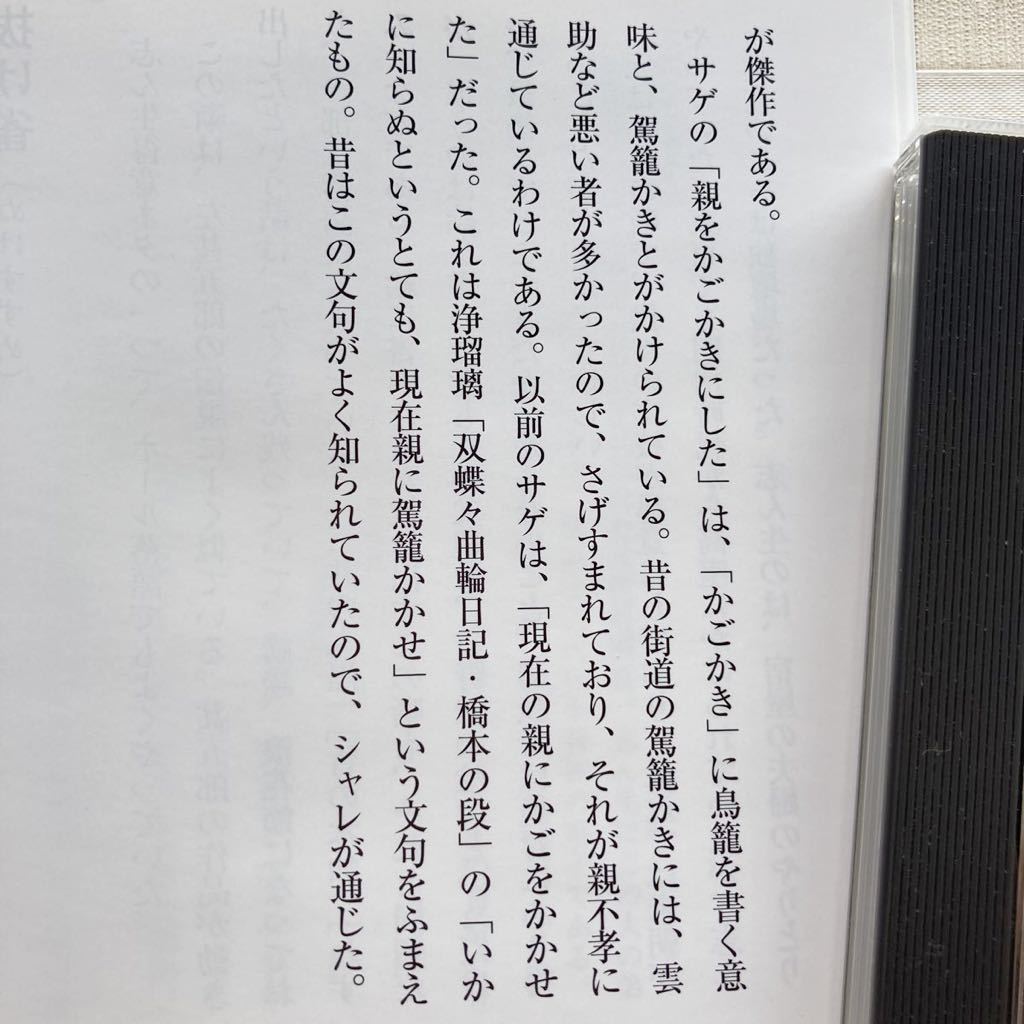 が傑作である。
サゲの「親をかごかきにした」は、「かごかき」に鳥籠を書く意
味と、駕籠かきとがかけられている。昔の街道の駕籠かきには、雲
助など悪い者が多かったので、さげすまれており、それが親不孝に
通じているわけである。以前のサゲは、「現在の親にかごをかかせ
た」だった。これは浄瑠璃「双蝶々曲輪日記・橋本の段」の「いか
に知らぬというとても、現在親に駕籠かかせ」という文句をふまえ
たもの。昔はこの文句がよく知られていたので、シャレが通じた。